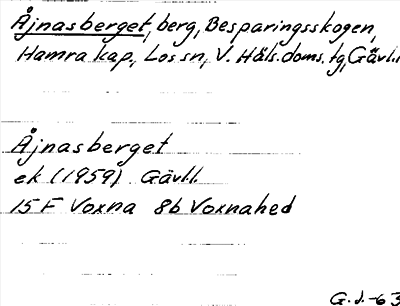 Åjnasberget, berg, Besparingsskogen,
Hamra kap., Los sn, V. Häls. doms. tg, Gävl. l
Åjnasberget
ek (1959) Gävl.l.
15 F Voxna 8b Voxnahed
G. J. -63